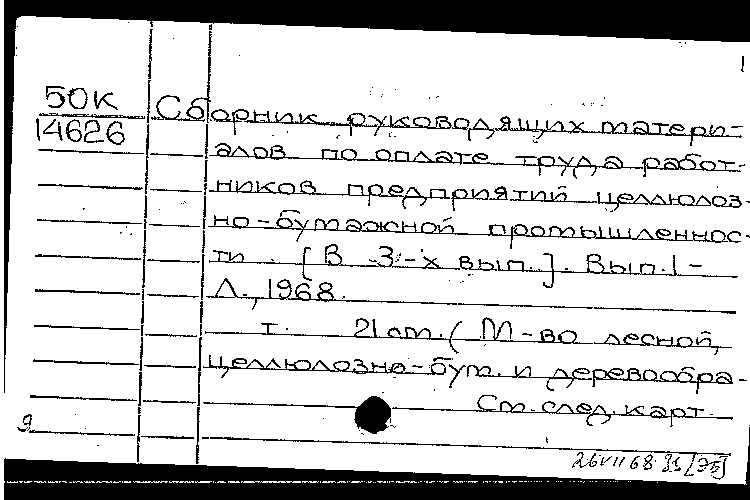 1
50К
14626
Сборник руководящих матери-
алов по оплате труда работ-
ников предприятий целлюлоз-
но-бумажной промышленнос-
ти. [В 3-х вып.]. Вып.1-
Л., 1968.
т. 21 см. (М-во лесной,
целлюлозно-бум. и деревообра-
См. след. карт.
9
26 VII 68